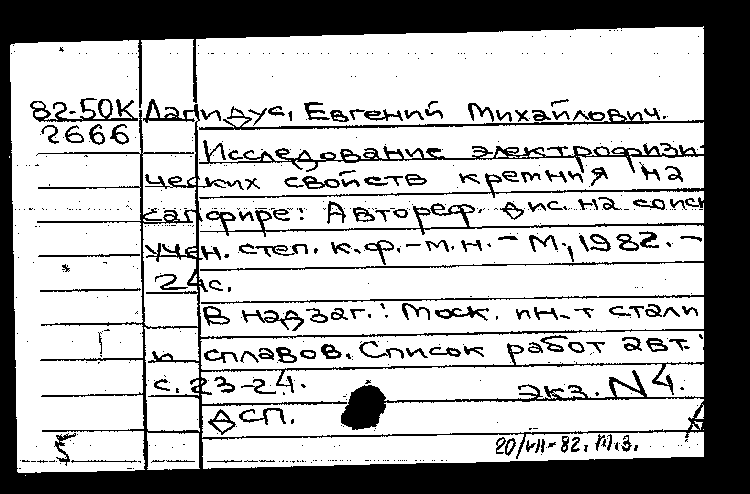 82-50К Лапидус, Евгений Михайлович.
2666
Исследование электрофизи-
ческих свойств кремния на
сапфире: Автореф. дис. на соиск
учен. степ. к.ф.-м.н. - М., 1982. -
24с.
В надзаг.: Моск. ин-т стали
и сплавов. Список работ авт.:
с. 23-24.
экз. N4.
ДСП.
20/VII-82. Т.З.